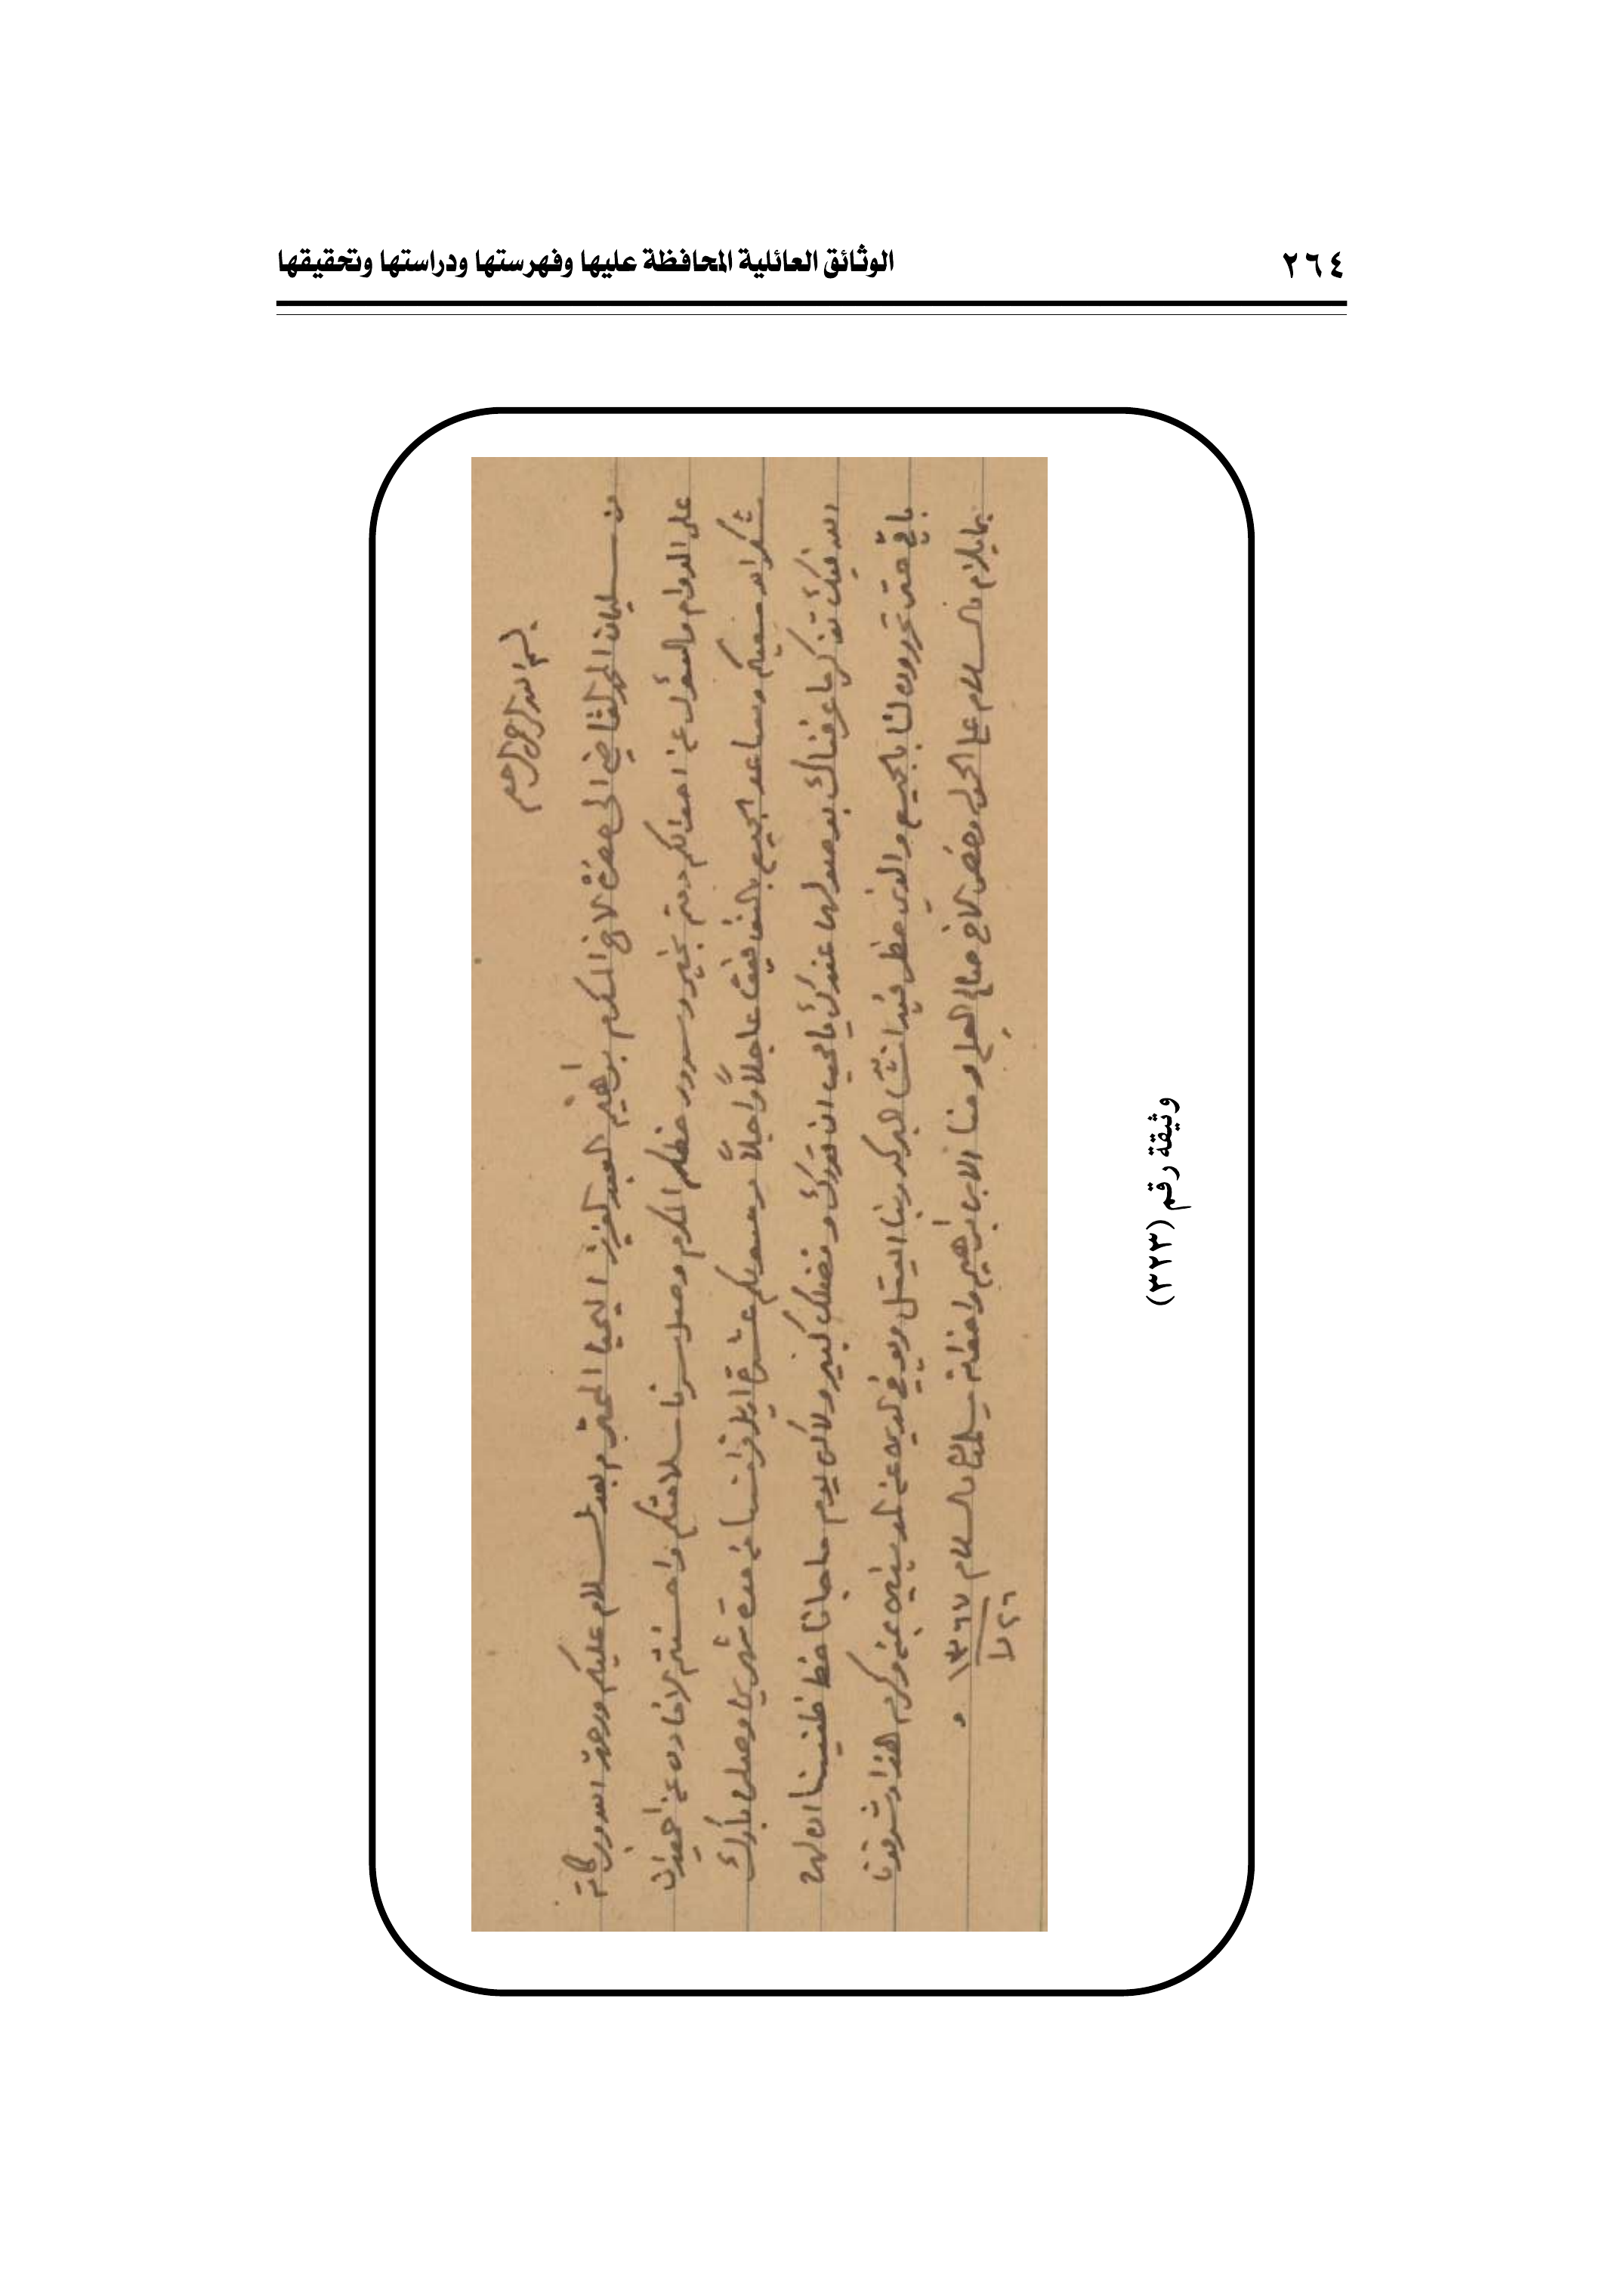 ٢٦٤
الوثائق العائلية المحافظة عليها وفهرستها ودراستها وتحقيقها
بسم الله الرحمن الرحيم
من سليمان المحمد القاضي الى حضرة الاخ المكرم ابراهيم العبد العزيز اليحيا المحترم بعد السلام عليكم ورحمة الله وبركاته
على الدوام والسؤال عن احوالكم دمتم بخير وسرور خطكم المكرم وصل سرنا سلامتكم واحسنتم الافادة عن
شكر الله سعيكم وساعد الجميع بالتوفيق عاجلاً واجلاً وصولكم عشرة اريل من مدة شهر وصلن بارك
الله فيك تذكر ما عرفناك بوصولهن عندك يا محب ان قدرك وفضلك كبير ولاكن يوم ما جانا خط ظنينا انهن
باقي حتى تحررون لنا بالجميع والذي خطر فيه انشا البركه ربنا يوفي لدين عن المدينين بمنه وكرمه هذا وشرفونا
بما يلزم والسلام على الحمولة وخص الاخ صالح العلي ومنا الابن ابراهيم واخوانه يسلمون والسلام ١٣٦٧
٢٦
وثيقة رقم (٣٢٣)